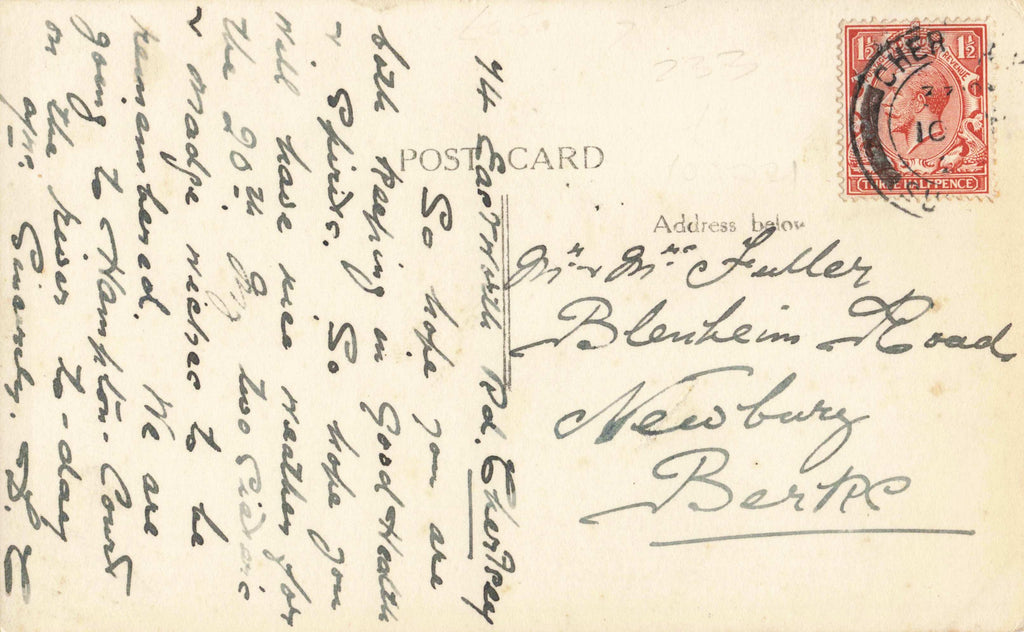 POST CARD
Address below
Mr & Mrs Fuller
Blenheim Road
Newbury
Berks
44 Eastworth Rd. Chertsey
So hope you are
both keeping in Good Health
& Spirits. So hope you
will have nice weather for
the 20th My two
& Madge wishes to be
remembered. We are
going to Hampton-Court
on the River to-day
Sincerely.
CHER
1½ 1½